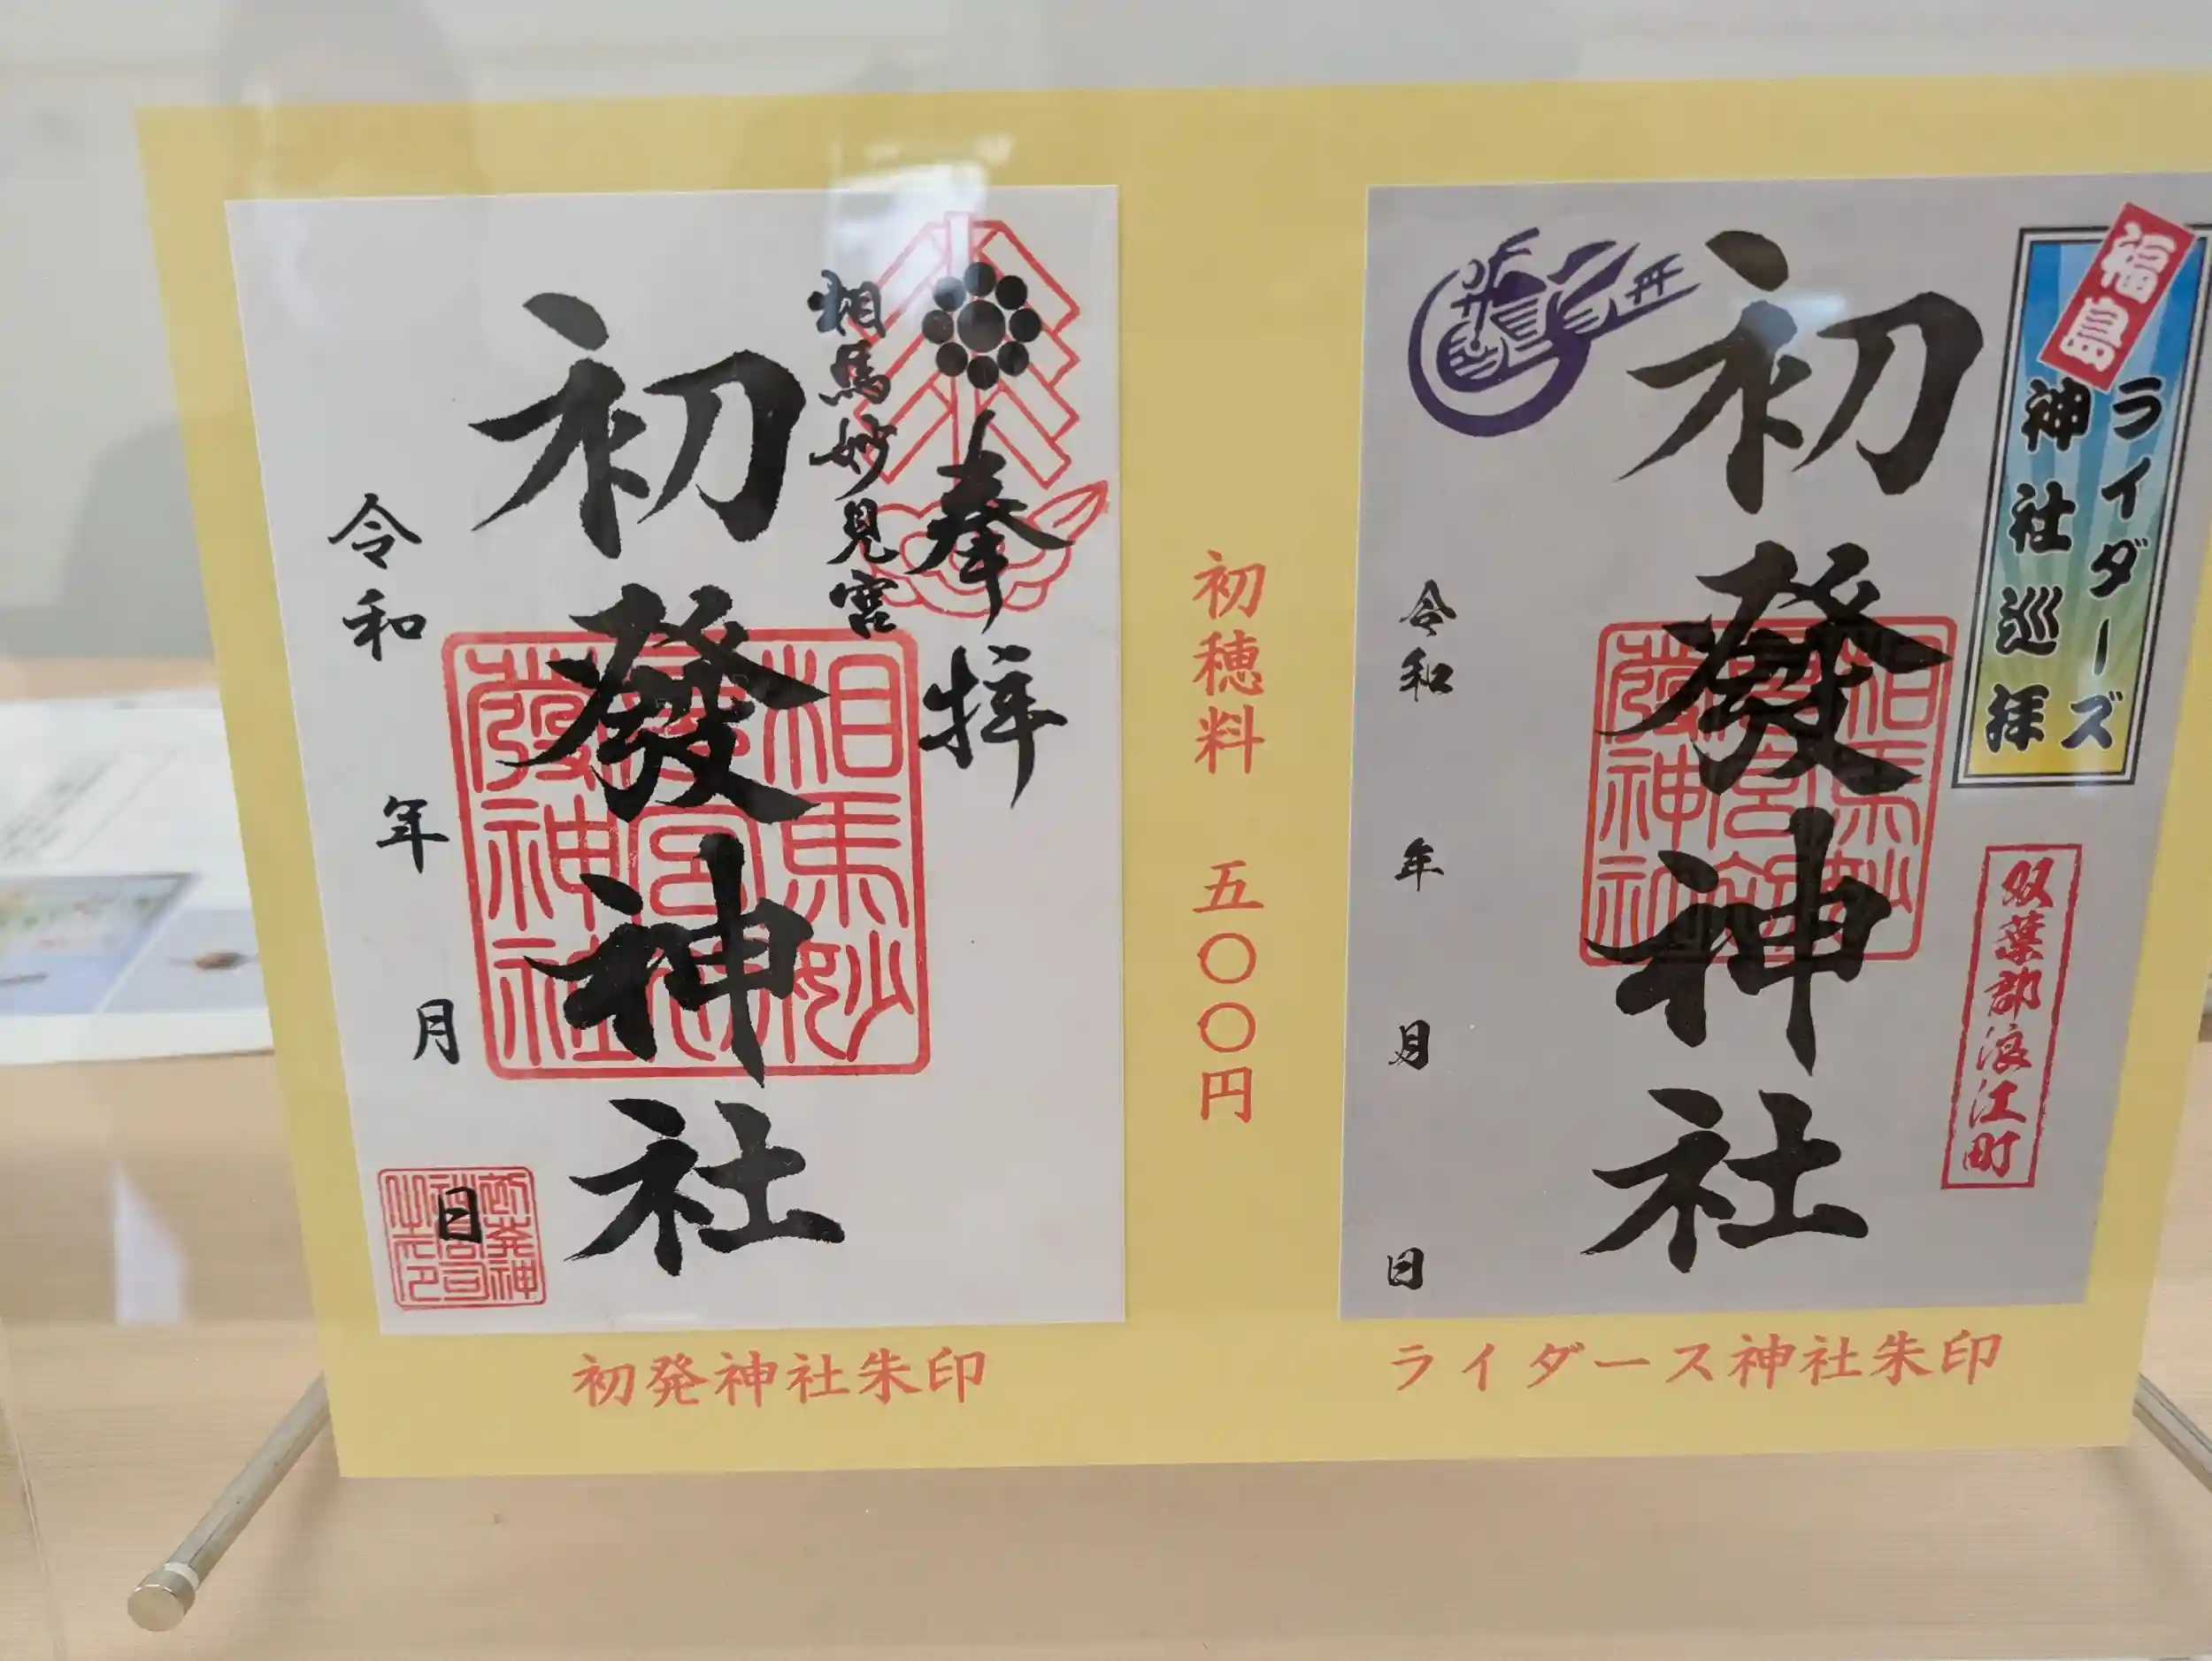 奉拝
相馬妙見宮
初發神社
相馬妙
宮初
發神社
令和 年 月 日
初発神社朱印
初穂料 五〇〇円
福島
ライダーズ
神社巡拝
双葉郡浪江町
初發神社
令和 年 月 日
ライダース神社朱印